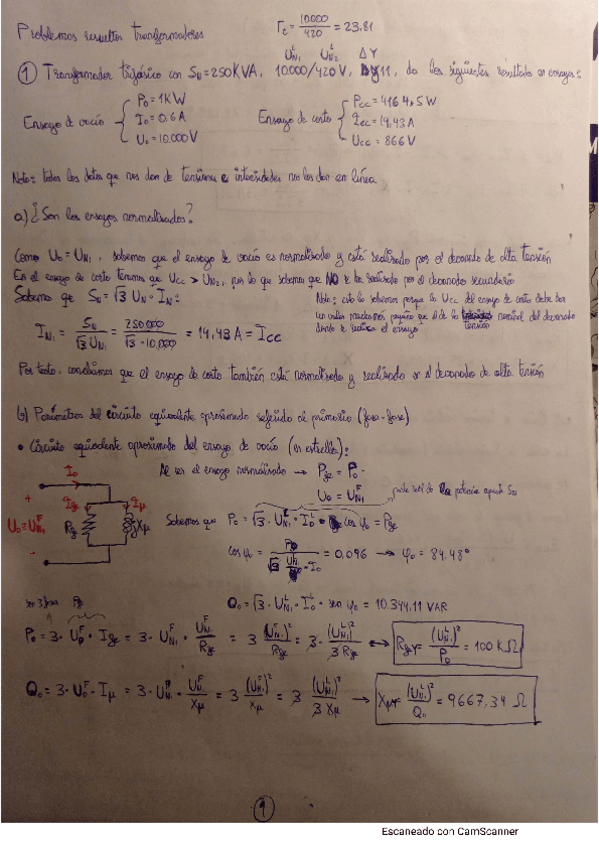 Problemas resueltos transformadores
rt = 10.000/420 = 23.81
UN1 UN2 ΔY
① Transformador trifásico con SN=250KVA, 10.000/420V, Dy11, da los siguientes resultados en ensayos:
Ensayo de vacío { P0=1KW
I0=0.6A
U0=10.000V
Ensayo de corto { Pcc=4164,5W
Icc=14,43A
Ucc=866V
Nota: todos los datos que nos dan de tensiones e intensidades nos los dan en línea
a) ¿Son los ensayos normalizados?
Como U0=UN1, sabemos que el ensayo de vacío es normalizado y está realizado por el devanado de alta tensión
En el ensayo de corto tenemos que Ucc > UN2, por lo que sabemos que NO se ha realizado por el devanado secundario
Sabemos que SN=√3 UN·IN:
Nota: esto lo sabemos porque la Ucc del ensayo de corto debe ser
un valor mucho más pequeño que el de la tensión nominal del devanado
donde se realiza el ensayo
IN1 = SN/√3 UN1 = 250.000/√3·10.000 = 14,43A = Icc
Por tanto, concluimos que el ensayo de corto también está normalizado y realizado en el devanado de alta tensión
b) Parámetros del circuito equivalente aproximado referido al primario (fase-fase)
• Circuito equivalente aproximado del ensayo de vacío (en estrella):
Al ser el ensayo normalizado → Pfe = P0
U0 = UN1
I0
Ife
Iμ
+
U0=UN1F
-
Rfe
Xμ
Sabemos que P0=√3·UN1L·I0L·cos φ0 = Pfe
cos φ0 = P0/√3 UN1·I0 = 0,096 → φ0 = 84.48°
Q0=√3·UN1L·I0L·sen φ0 = 10.344,11 VAR
son 3 fases
Pfe
P0=3·U0F·Ife = 3·UN1F·UN1F/Rfe = 3 (UN1F)²/Rfe = 3·(UN1L)²/3 Rfe ↔ RfeY = (UN1L)²/P0 = 100 KΩ
Q0=3·U0F·Iμ = 3·UN1F·UN1F/Xμ = 3 (UN1F)²/Xμ = 3 (UN1L)²/3 Xμ → XμY = (UN1L)²/Q0 = 9667,34 Ω
①
Escaneado con CamScanner